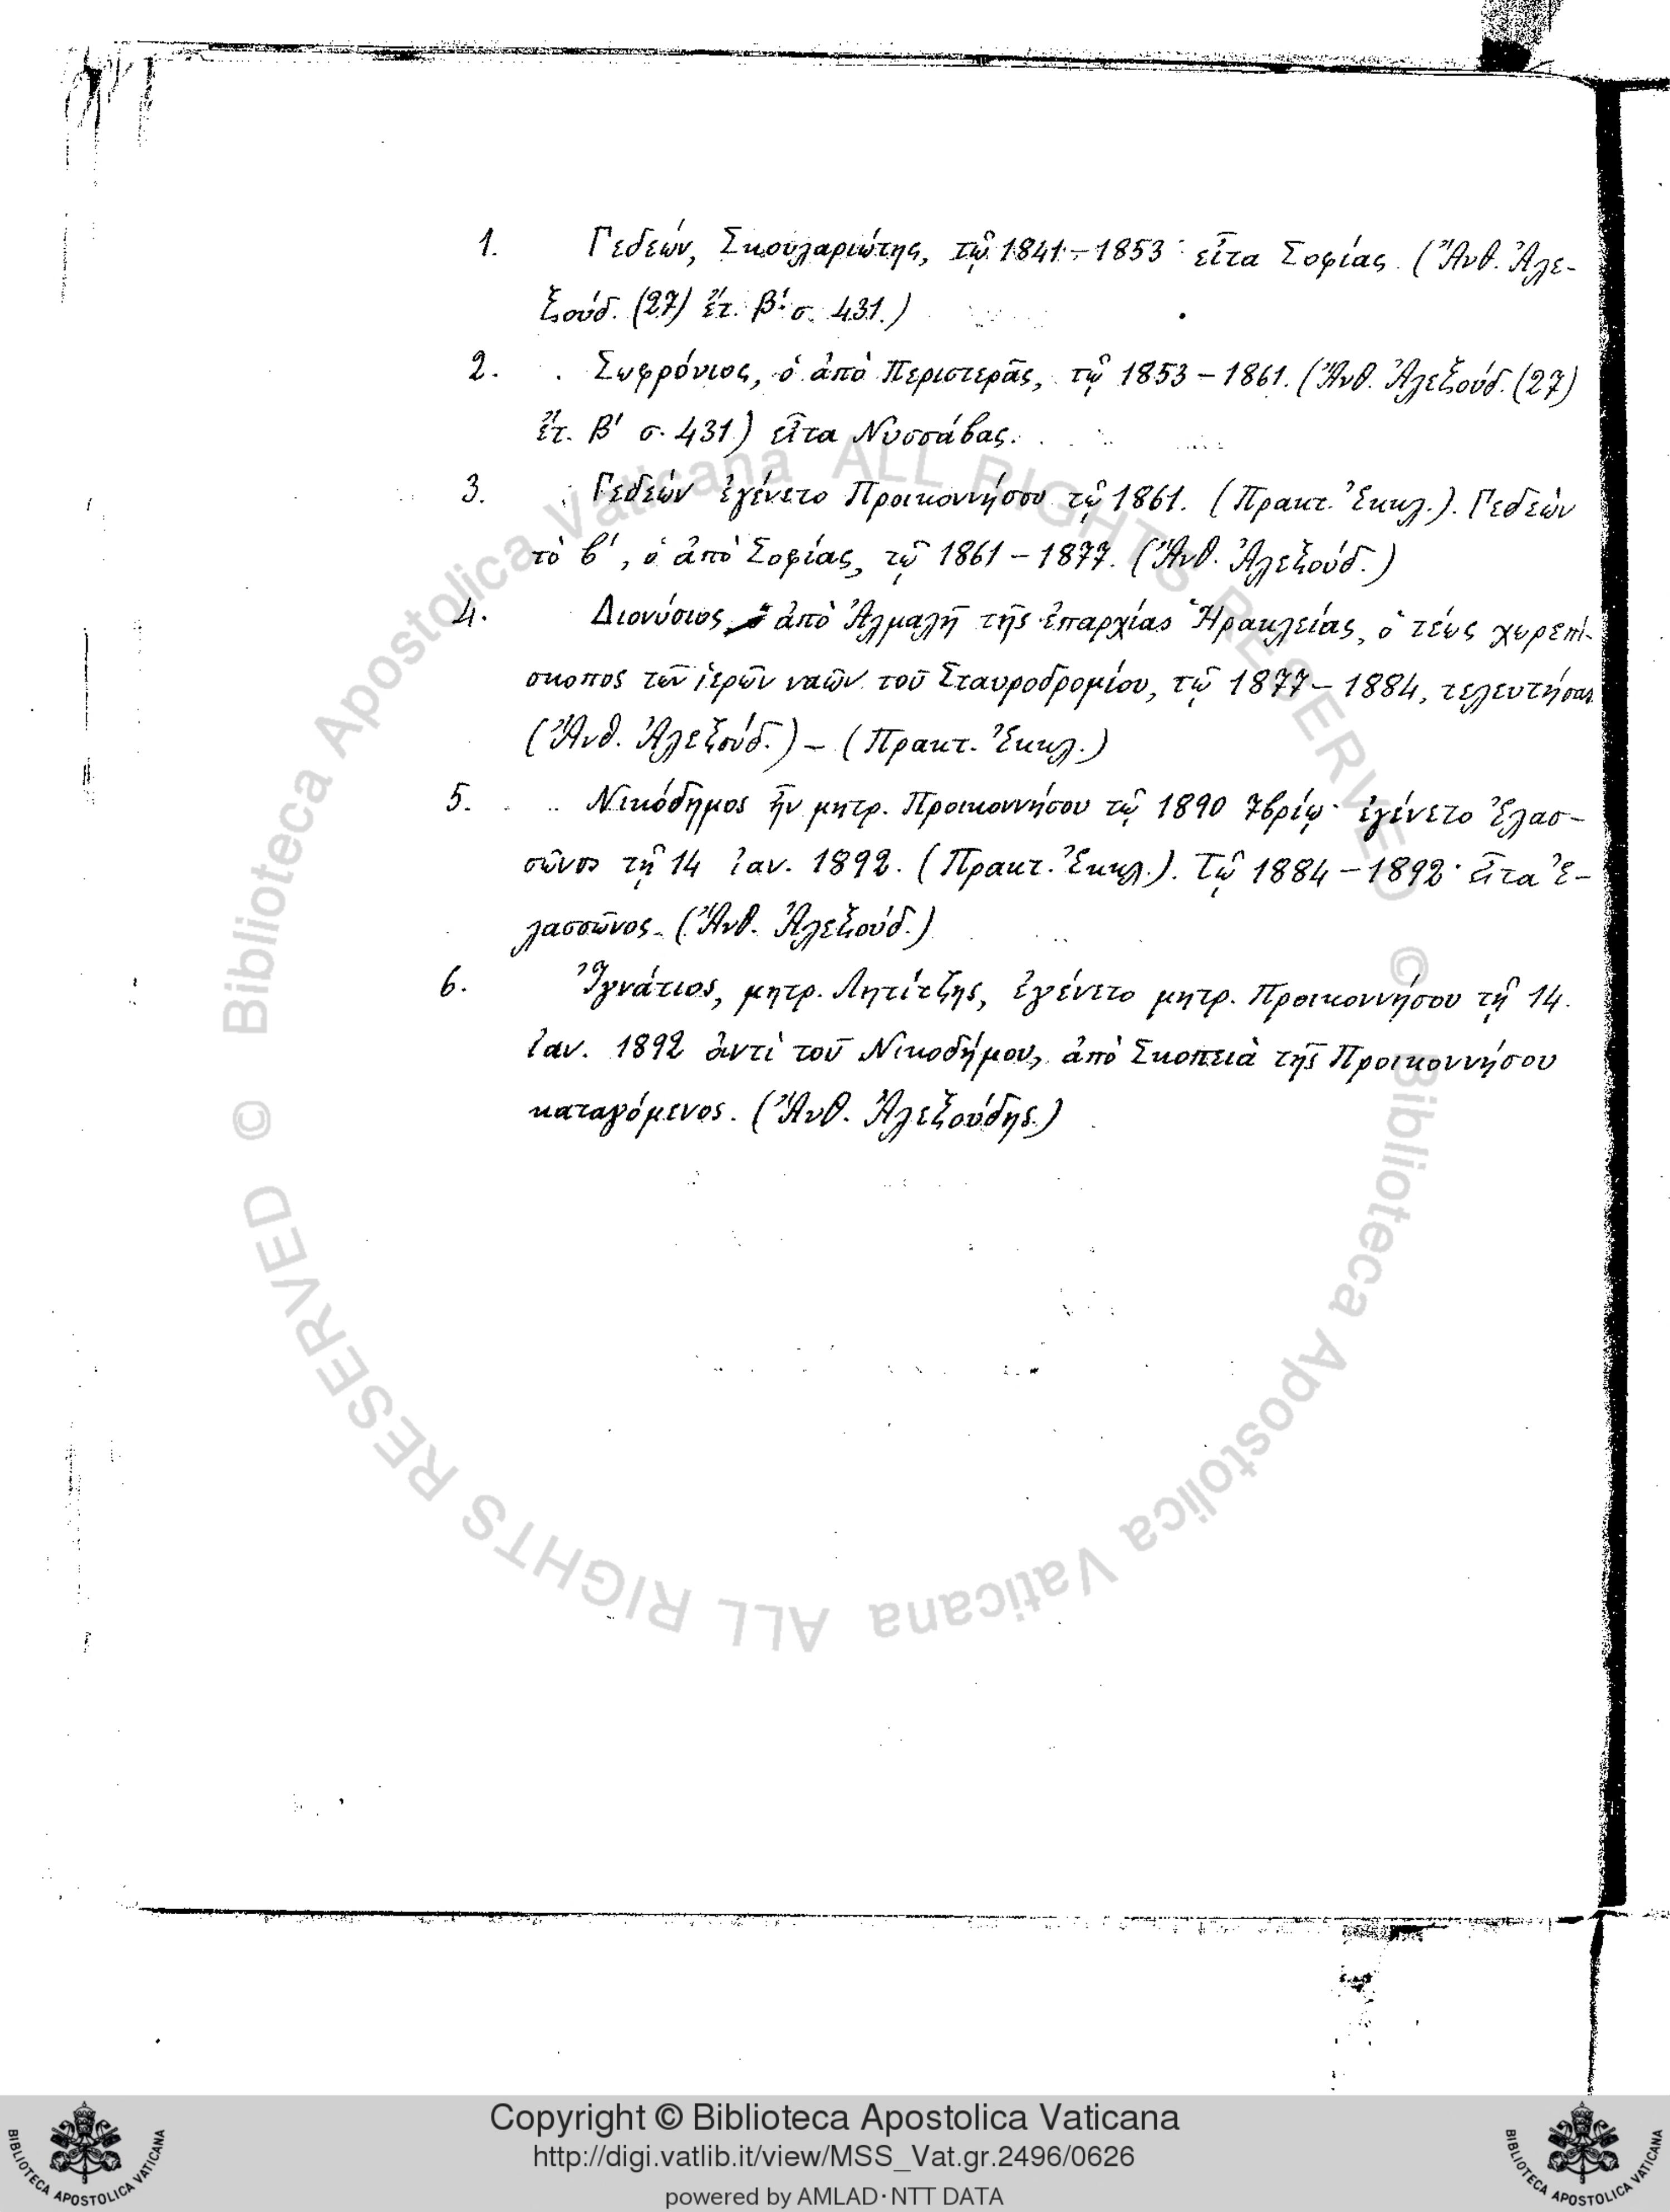 1. Γεδεών, Σκουλαριώτης, τῷ 1841–1853· εἶτα Σοφίας. (Ἄνθ. Ἀλε-
ξούδ. (27) ἔτ. β′ σ. 431.)
2. Σωφρόνιος, ὁ ἀπὸ Περιστερᾶς, τῷ 1853–1861. (Ἄνθ. Ἀλεξούδ. (27)
ἔτ. β′ σ. 431) εἶτα Νυσσάβας.
3. Γεδεών ἐγένετο Προικοννήσου τῷ 1861. (Πρακτ. Ἐκκλ.). Γεδεὼν
τὸ β′, ὁ ἀπὸ Σοφίας, τῷ 1861–1877. (Ἄνθ. Ἀλεξούδ.)
4. Διονύσιος, ἀπὸ Ἀλμαλῆ τῆς ἐπαρχίας Ἡρακλείας, ὁ τέως χωρεπί-
σκοπος τῶν ἱερῶν ναῶν τοῦ Σταυροδρομίου, τῷ 1877–1884, τελευτήσας
(Ἄνθ. Ἀλεξούδ.) – (Πρακτ. Ἐκκλ.)
5. Νικόδημος ἦν μητρ. Προικοννήσου τῷ 1890 7βρίῳ· ἐγένετο Ἐλασ-
σῶνος τῇ 14 ἰαν. 1892. (Πρακτ. Ἐκκλ.). Τῷ 1884–1892· εἶτα Ἐ-
λασσῶνος. (Ἄνθ. Ἀλεξούδ.)
6. Ἰγνάτιος, μητρ. Λητίτζης, ἐγένετο μητρ. Προικοννήσου τῇ 14.
ἰαν. 1892 ἀντὶ τοῦ Νικοδήμου, ἀπὸ Σκοπειὰ τῆς Προικοννήσου
καταγόμενος. (Ἄνθ. Ἀλεξούδης.)
© Biblioteca Apostolica Vaticana ALL RIGHTS RESERVED
© Biblioteca Apostolica Vaticana ALL RIGHTS RESERVED
BIBLIOTECA APOSTOLICA VATICANA
Copyright © Biblioteca Apostolica Vaticana
http://digi.vatlib.it/view/MSS_Vat.gr.2496/0626
powered by AMLAD·NTT DATA
BIBLIOTECA APOSTOLICA VATICANA